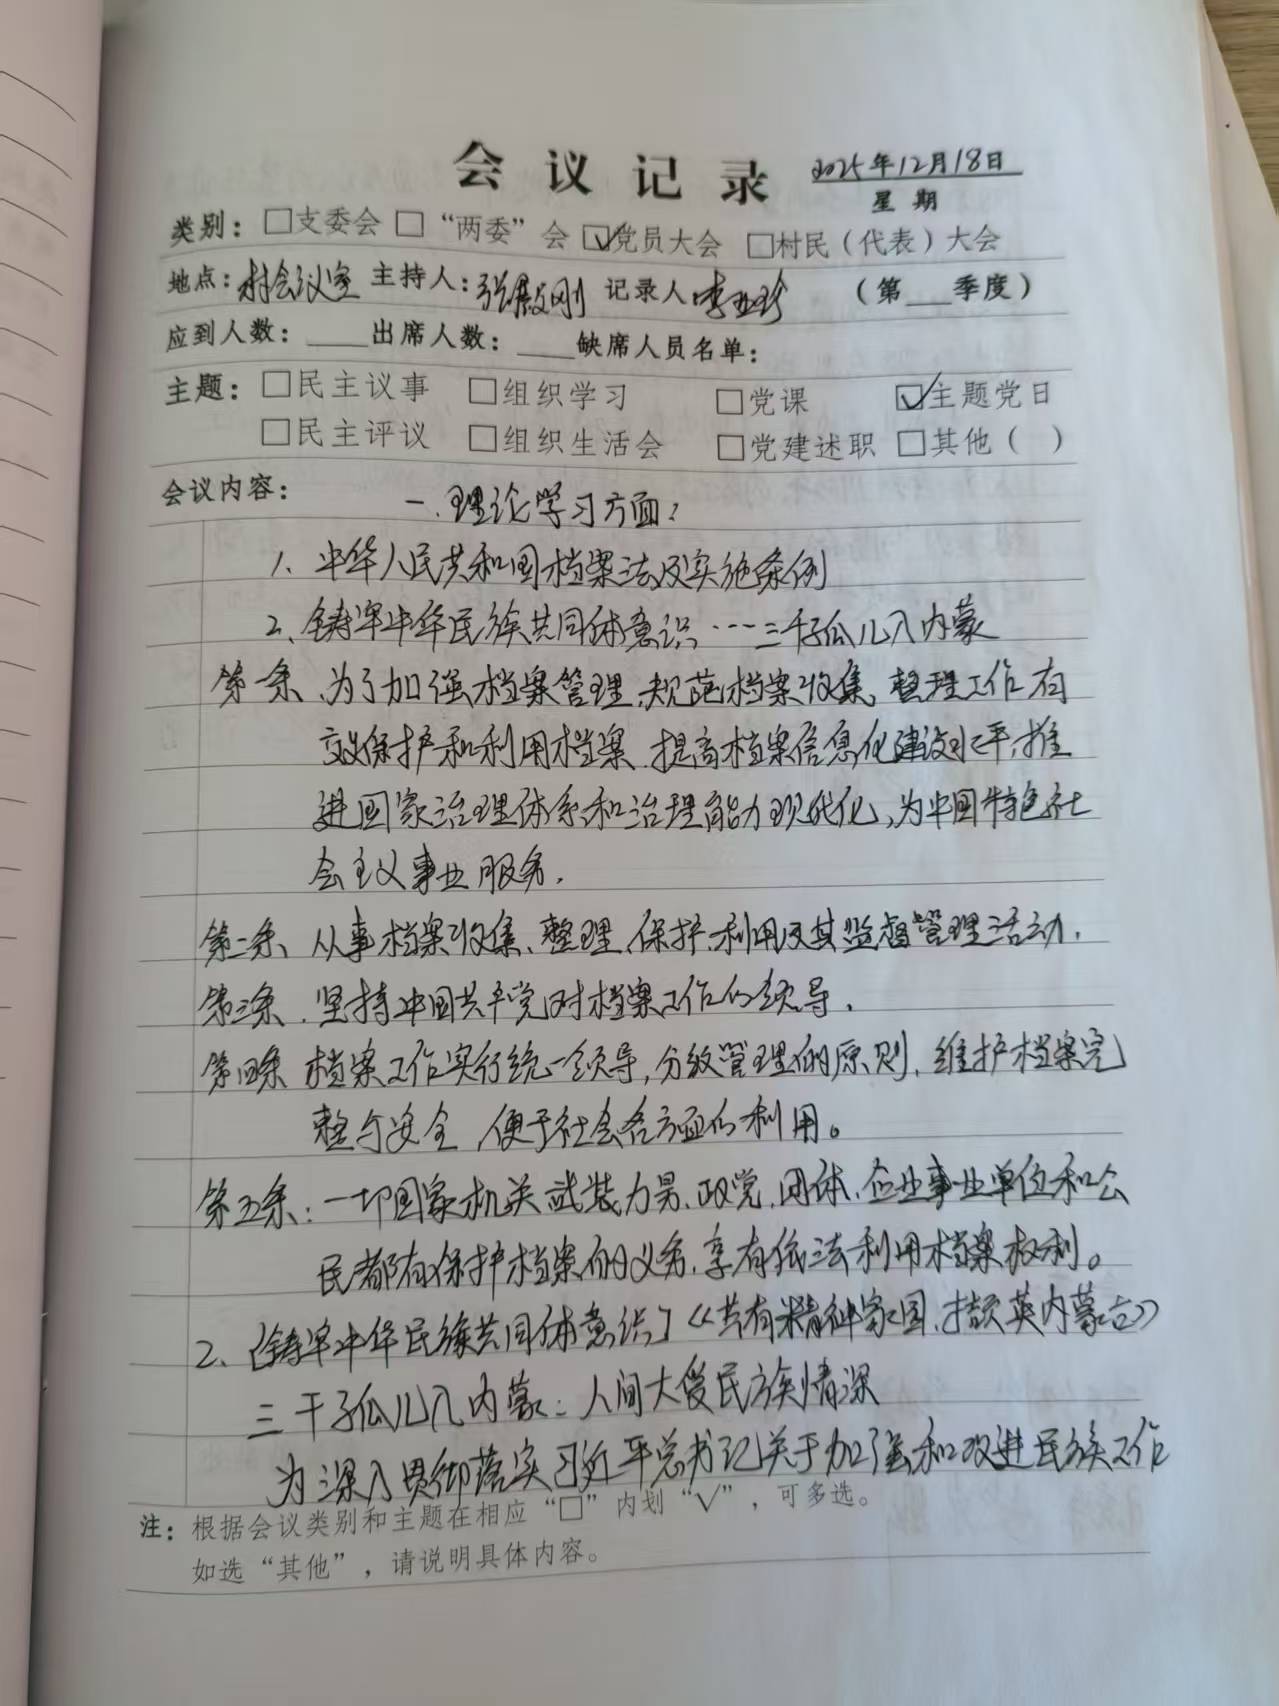 会议记录 2025年12月18日
星期
类别：□支委会 □“两委”会 ☑党员大会 □村民（代表）大会
地点：村会议室 主持人：张殿刚 记录人 李亚珍 （第___季度）
应到人数：____出席人数：____缺席人员名单：
主题：□民主议事 □组织学习 □党课 ☑主题党日
□民主评议 □组织生活会 □党建述职 □其他（ ）
会议内容： 一、理论学习方面：
1、中华人民共和国档案法及实施条例
2、铸牢中华民族共同体意识……三千孤儿入内蒙
第一条、为了加强档案管理,规范档案收集、整理工作有
效保护和利用档案、提高档案信息化建设水平,推
进国家治理体系和治理能力现代化,为中国特色社
会主义事业服务.
第二条、从事档案收集、整理、保护、利用及其监督管理活动.
第三条、坚持中国共产党对档案工作的领导.
第四条 档案工作实行统一领导,分级管理的原则,维护档案完
整与安全,便于社会各方面的利用。
第五条：一切国家机关武装力量、政党、团体、企业事业单位和公
民都有保护档案的义务,享有依法利用档案权利。
2、《铸牢中华民族共同体意识》《共有精神家园,撷英内蒙古》
三千孤儿入内蒙：人间大爱民族情深
为深入贯彻落实习近平总书记关于加强和改进民族工作
注：根据会议类别和主题在相应“□”内划“√”，可多选。
如选“其他”，请说明具体内容。